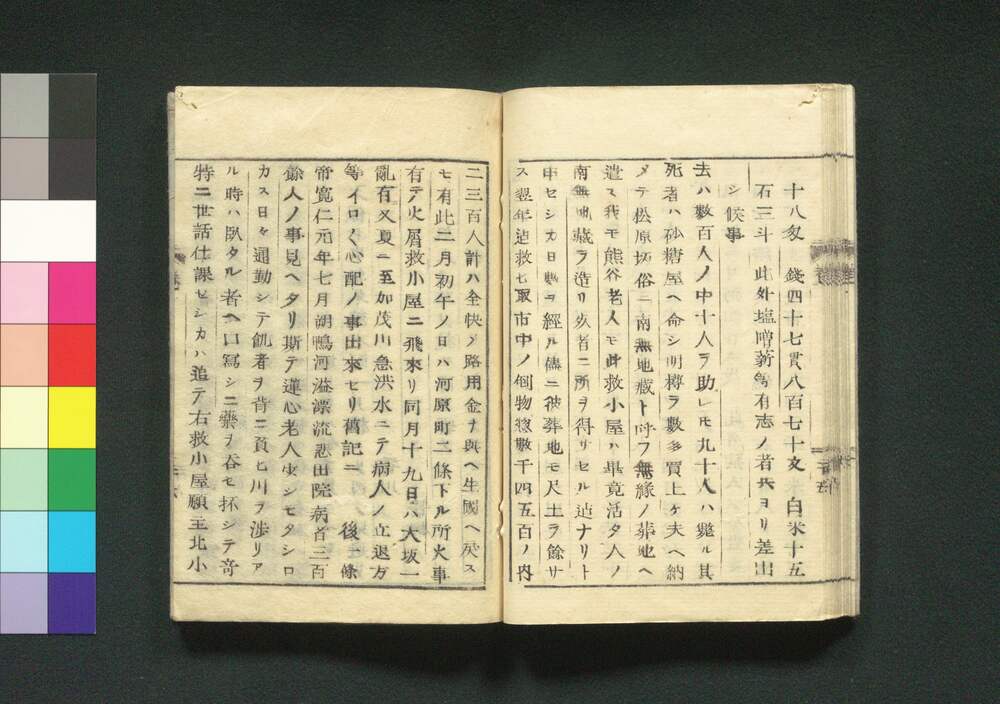 十八匁 錢四十七貫八百七十文 白米十五
石三斗 此外塩噌薪等有志ノ者共ヨリ差出
シ候事
去ハ數百人ノ中十人ヲ助レモ九十人ハ斃ル其
死者ハ砂糖屋ヘ命シ明樽ヲ數多買上ケ夫ヘ納
メテ松原坂俗ニ南無地蔵ト呼フ無縁ノ葬地ヘ
遣ス我モ熊谷老人モ此救小屋ハ畢竟活タ人ノ
南無地蔵ヲ造リ 者ニ所ヲ得サセル迠ナリト
申セシカ日數ヲ經ル儘ニ彼葬地モ尺土ヲ餘サ
ス翌年迠救七取市中ノ倒物惣數千四五百ノ内
二三百人計ハ全快ノ路用金ヲ與ヘ生國ヘ戻ス
モ有此二月初午ノ日ハ河原町二條下ル所火事
有テ火屑救小屋ニ飛來リ同月十九日ハ大坂一
亂有又夏ニ至加茂川急洪水ニテ病人ノ立退方
等イロ〱心配ノ事出來セリ舊記ニ 後一條
帝寛仁元年七月朔鴨河溢漂流悲田院病首三百
餘人ノ事見ヘタリ斯テ蓮心老人少シモタシロ
カス日々通勤シテ飢者ヲ背ニ負ヒ川ヲ渉リア
ル時ハ臥タル者ヘ口寫シニ藥ヲ呑セ抔シテ奇
特ニ世話仕課セシカハ追テ右救小屋願主北小